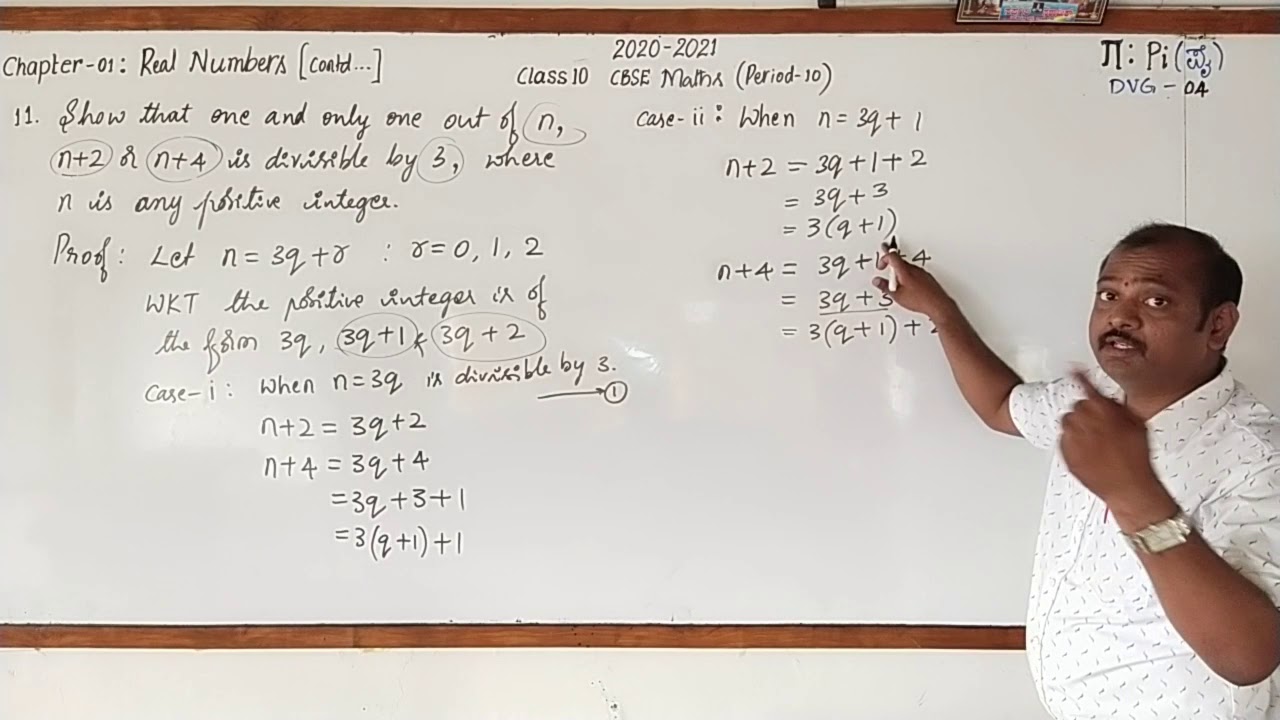 Chapter-01: Real Numbers [Contd...]
2020-2021
Class 10 CBSE Maths (Period-10)
Π: Pi(ಪೈ)
DVG-04
11. Show that one and only one out of n,
n+2 or n+4 is divisible by 3, where
n is any positive integer.
Proof: Let n = 3q + r : r = 0, 1, 2
WKT the positive integer is of
the form 3q, 3q+1 & 3q+2
Case-i: When n=3q is divisible by 3.
→ ①
n+2 = 3q+2
n+4 = 3q+4
=3q+3+1
=3(q+1)+1
Case-ii: When n=3q+1
n+2 = 3q+1+2
= 3q+3
= 3(q+1)
n+4 = 3q+1+4
= 3q+3
= 3(q+1)+2